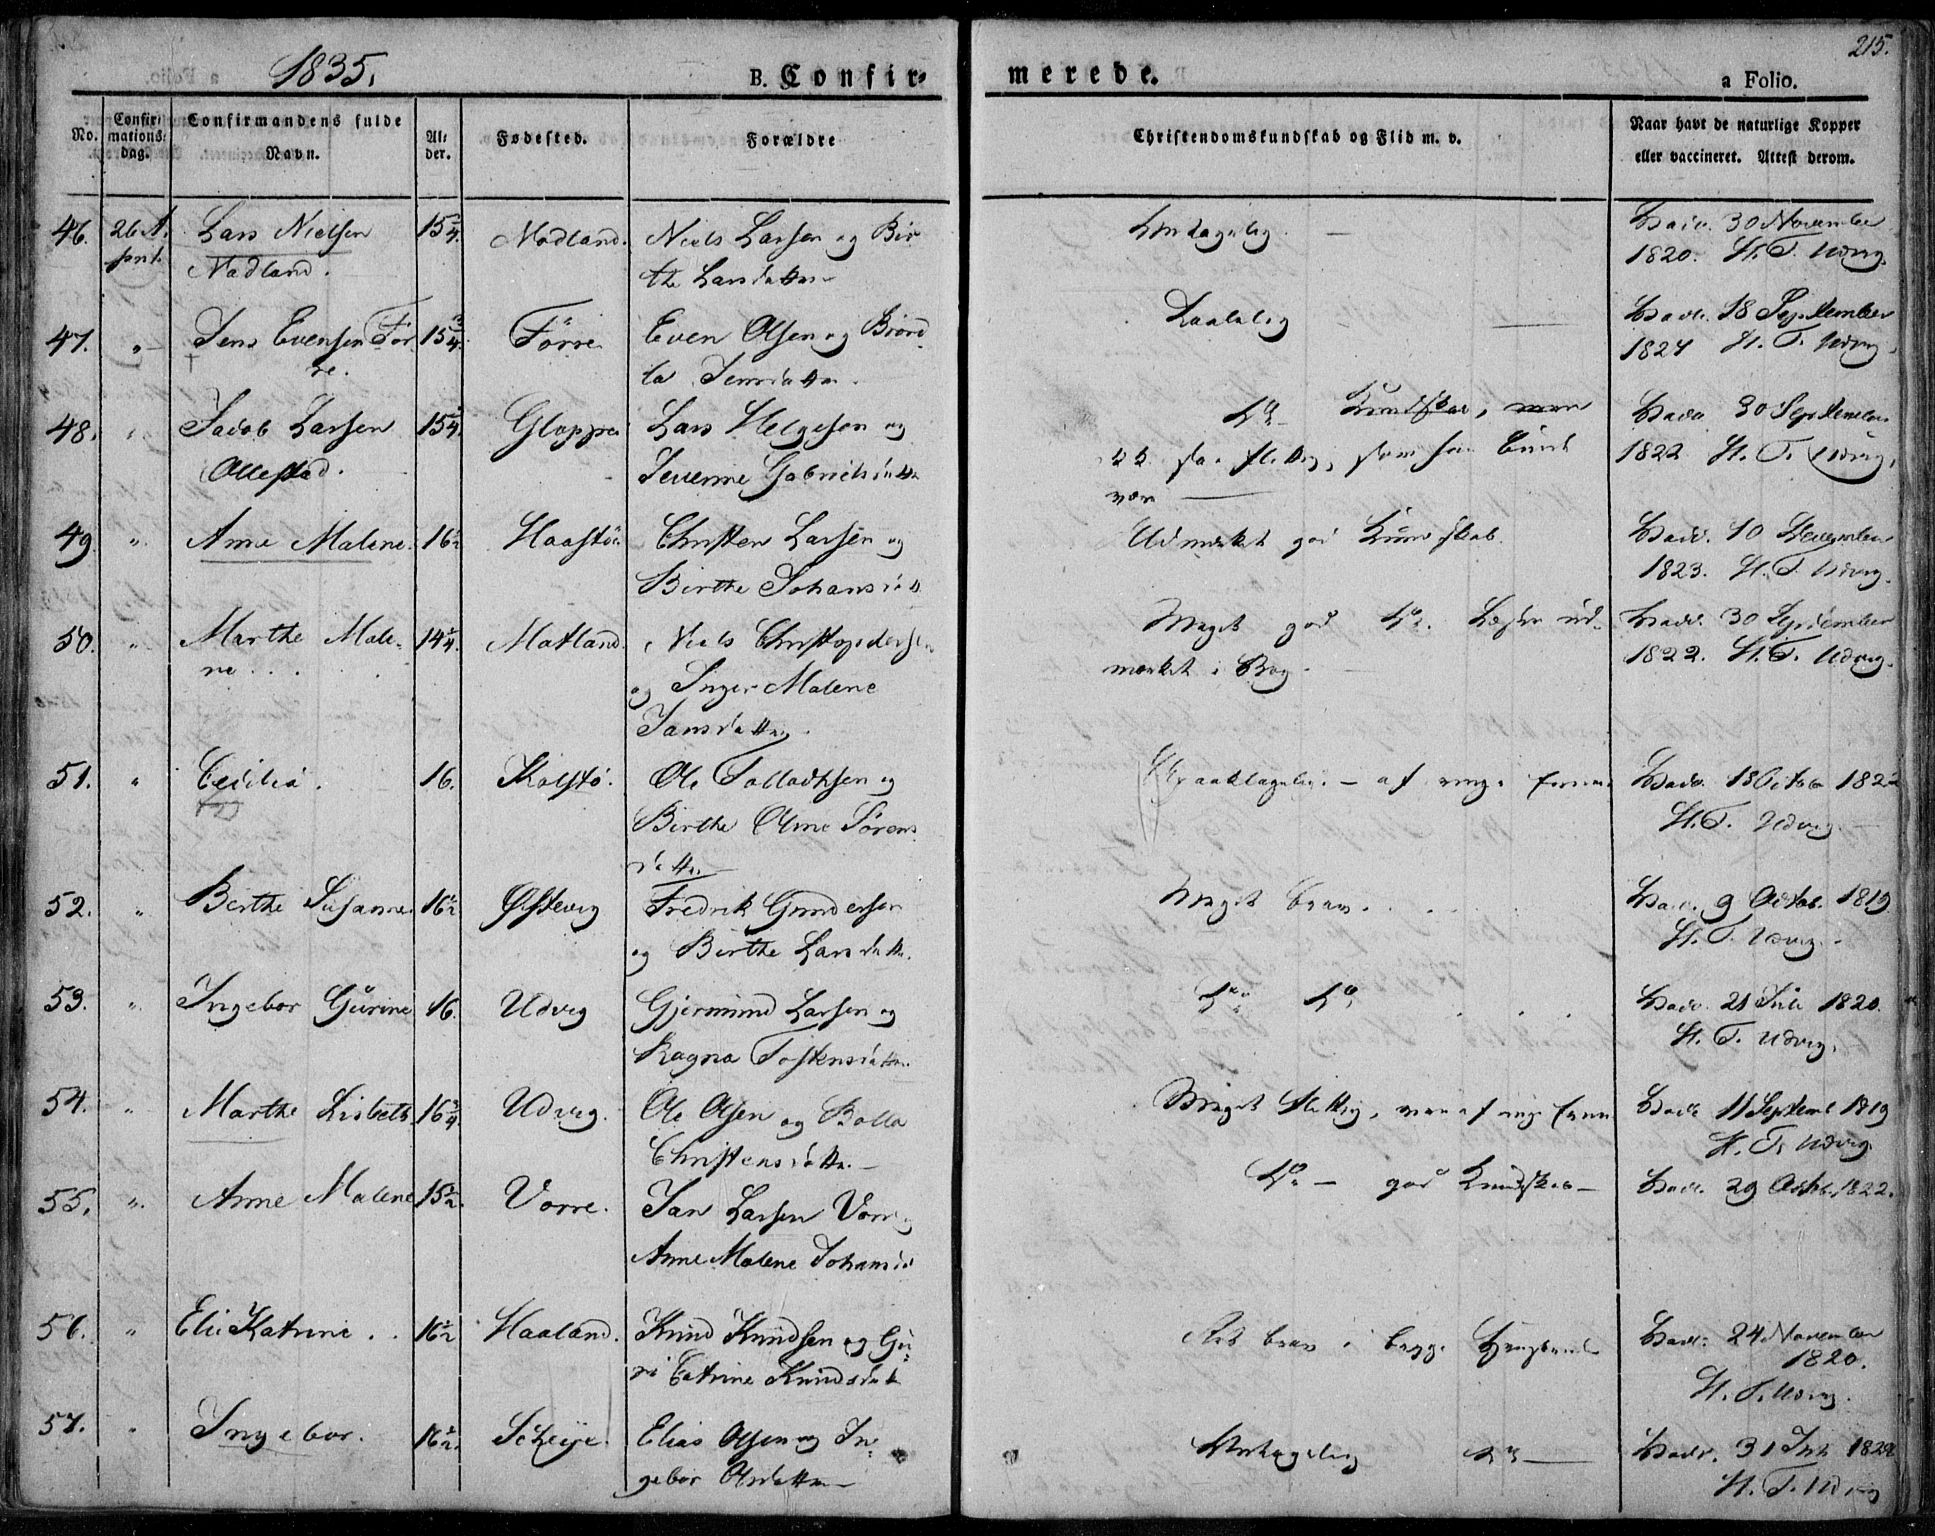 1835.
B. Confir-
merede.
215.
a Folio.
No.
Confir-
mations-
dag.
Confirmandens fulde
Navn.
Al-
der.
Fødested.
Forældre
Christendomskundskab og Flid m. v.
Naar havt de naturlige Kopper
eller vaccineret. Attest derom.
46. 26 A. Lars Nielsen 15 Madland. Niels Larsen og Bir
Madland. the Larsdatter
Antagelig
30 November
1820. H. T. Udvig.
47. " Jens Evensen För 15 3/4 Förre Even Olsen og
re. Jensdatter
Taalelig
18 September
1824 H. T. Udvig.
48. " Jacob Larsen 15 Gloppe Lars Helgesen og
Ollestad. Severine Gabrielsdatter
Do Kundskab, men
som han burde
være
30 September
1822 H. T. Udvig.
49 " Anne Malene 16 1/2 Haastö Christen Larsen og
Birthe Johansdat
Udmærket god Kundskab.
10 December
1823. H. T. Udvig.
50. " Marthe Male- 14 1/4 Matland Niels Christophersen
ne og Inger Malene
Jansdatter
Meget god Do. Læser ud-
mærket i Bog
30 September
1822. H. T. Udvig.
51. " Cecilia. 16. Kolstö. Ole Tollachsen og
Birthe Oline Sörens
datter
Upaaklagelig. - af ringe
18 Octob 1822
H. T. Udvig
52. " Berthe Susanne 16 1/2 Østevig Fredrik Gundersen
og Birthe Larsdatter.
Meget brav.
9 Octob. 1819
H. T. Udvig.
53. " Ingebor Gurine 16. Udvig Gjermund Larsen og
Ragna Tostensdatter.
Do Do
21 Juli 1820.
H. T. Udvig.
54. " Marthe Lisbeth 16 3/4 Udvig. Ole Olsen og Bolla
Christensdatter.
Meget flittig, men af ringe
11 Septemb 1819
H. T. Udvig
55. " Anne Malene 15 1/2 Vorre. Jan Larsen Vorre og
Anne Malene Johansd
Do - god Kundskab -
29 Octob. 1822.
56. " Elie Katrine 16 1/2 Haaland. Knud Knudsen og Gu-
ri Catrine Knudsdat
brav i begge Henseende
24 November
1820.
H. T. Udvig.
57. " Ingebor. 16 1/2 Scheije. Elias Olsen og In-
gebor Olsdatter
Antagelig Do
31 Juli
H. T. Udvig